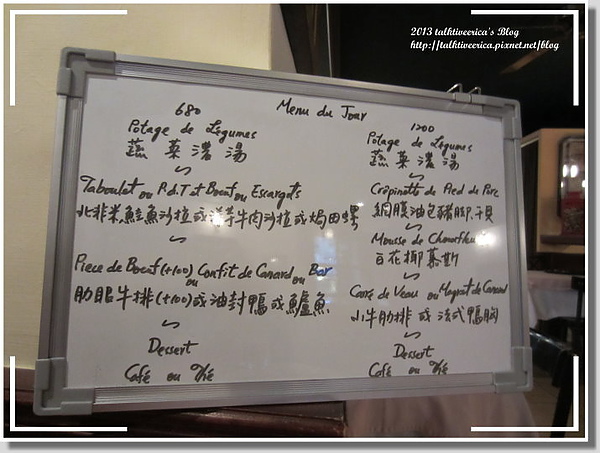 2013 talktiveerica's Blog
http://talktiveerica.pixnet.net/blog
Menu du Jour
680
Potage de Légumes
蔬菜濃湯
Taboulet ou P.d.T et Boeuf ou Escargots
北非米鮭魚沙拉或洋芋牛肉沙拉或焗田螺
Piece de Boeuf (+100) ou Confit de Canard ou Bar
肋眼牛排(+100)或油封鴨或鱸魚
Dessert
Café ou Thé
1200
Potage de Légumes
蔬菜濃湯
Crépinette de Pied de Porc
網膜油包豬腳.干貝
Mousse de
百花椰慕斯
Carré de Veau ou Magret de Canard
小牛肋排 或 法式鴨胸
Dessert
Café ou Thé